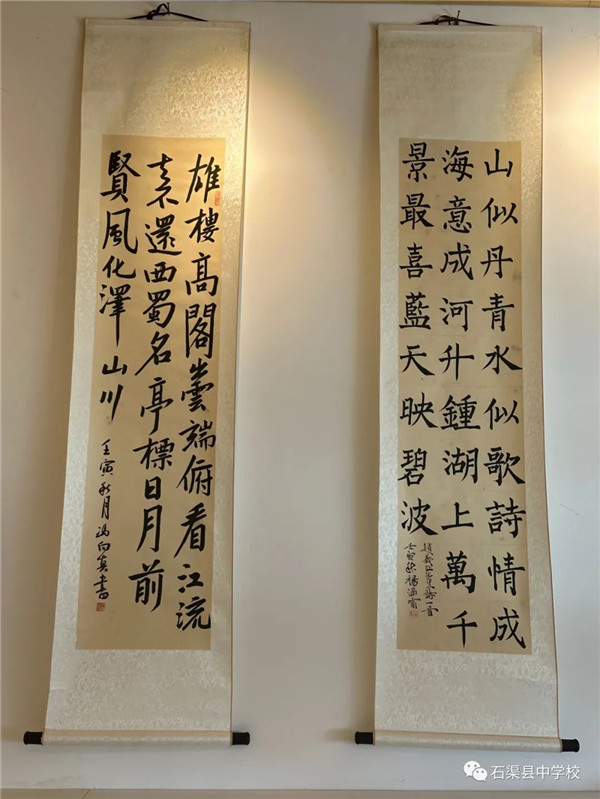 山似丹青水似歌詩情成
海意成河升鍾湖上萬千
景最喜藍天映碧波
壬寅秋楊
雄樓高閣出雲端俯看江流
去不還西蜀名亭標日月前
賢風化澤山川
壬寅秋月馮向 書
石渠县中学校